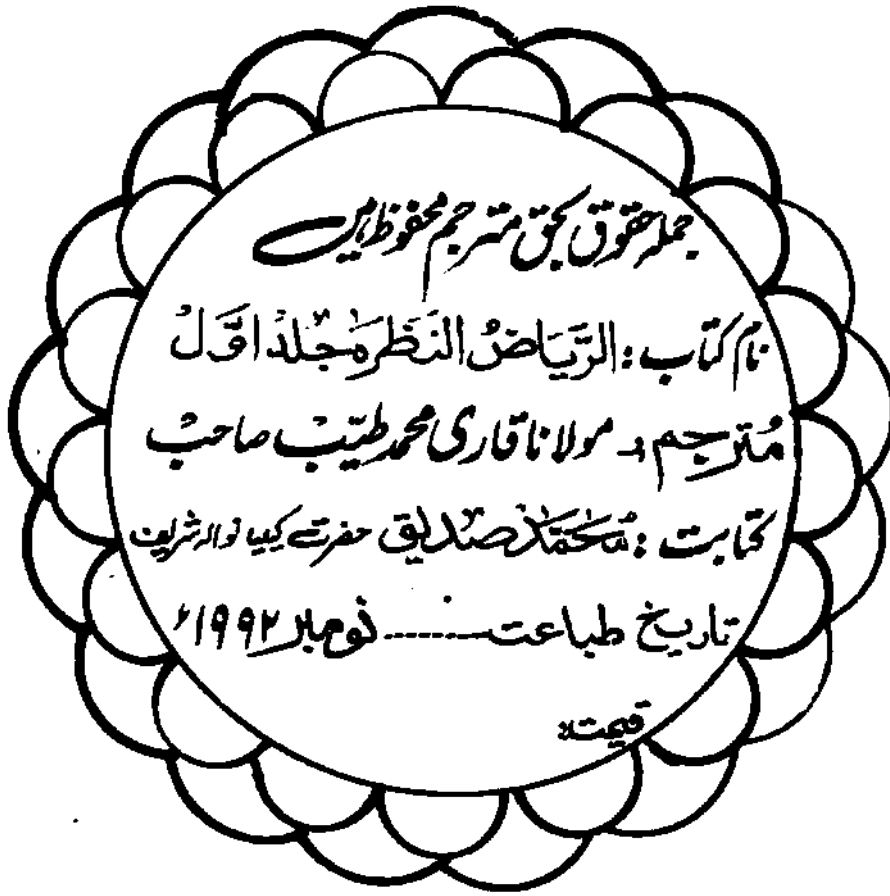 جملہ حقوق بحق مترجم محفوظ ہیں
نام کتاب : الرِّیَاضُ النَّظَرَہ مجلد اوّل
مُترجم :۔ مولانا قاری محمد طیّب صاحب
کتابت : مُحمّد صدیق حضرت کیلیانوالہ شریف
تاریخ طباعت ------ نومبر ۱۹۹۲ء
قیمت :